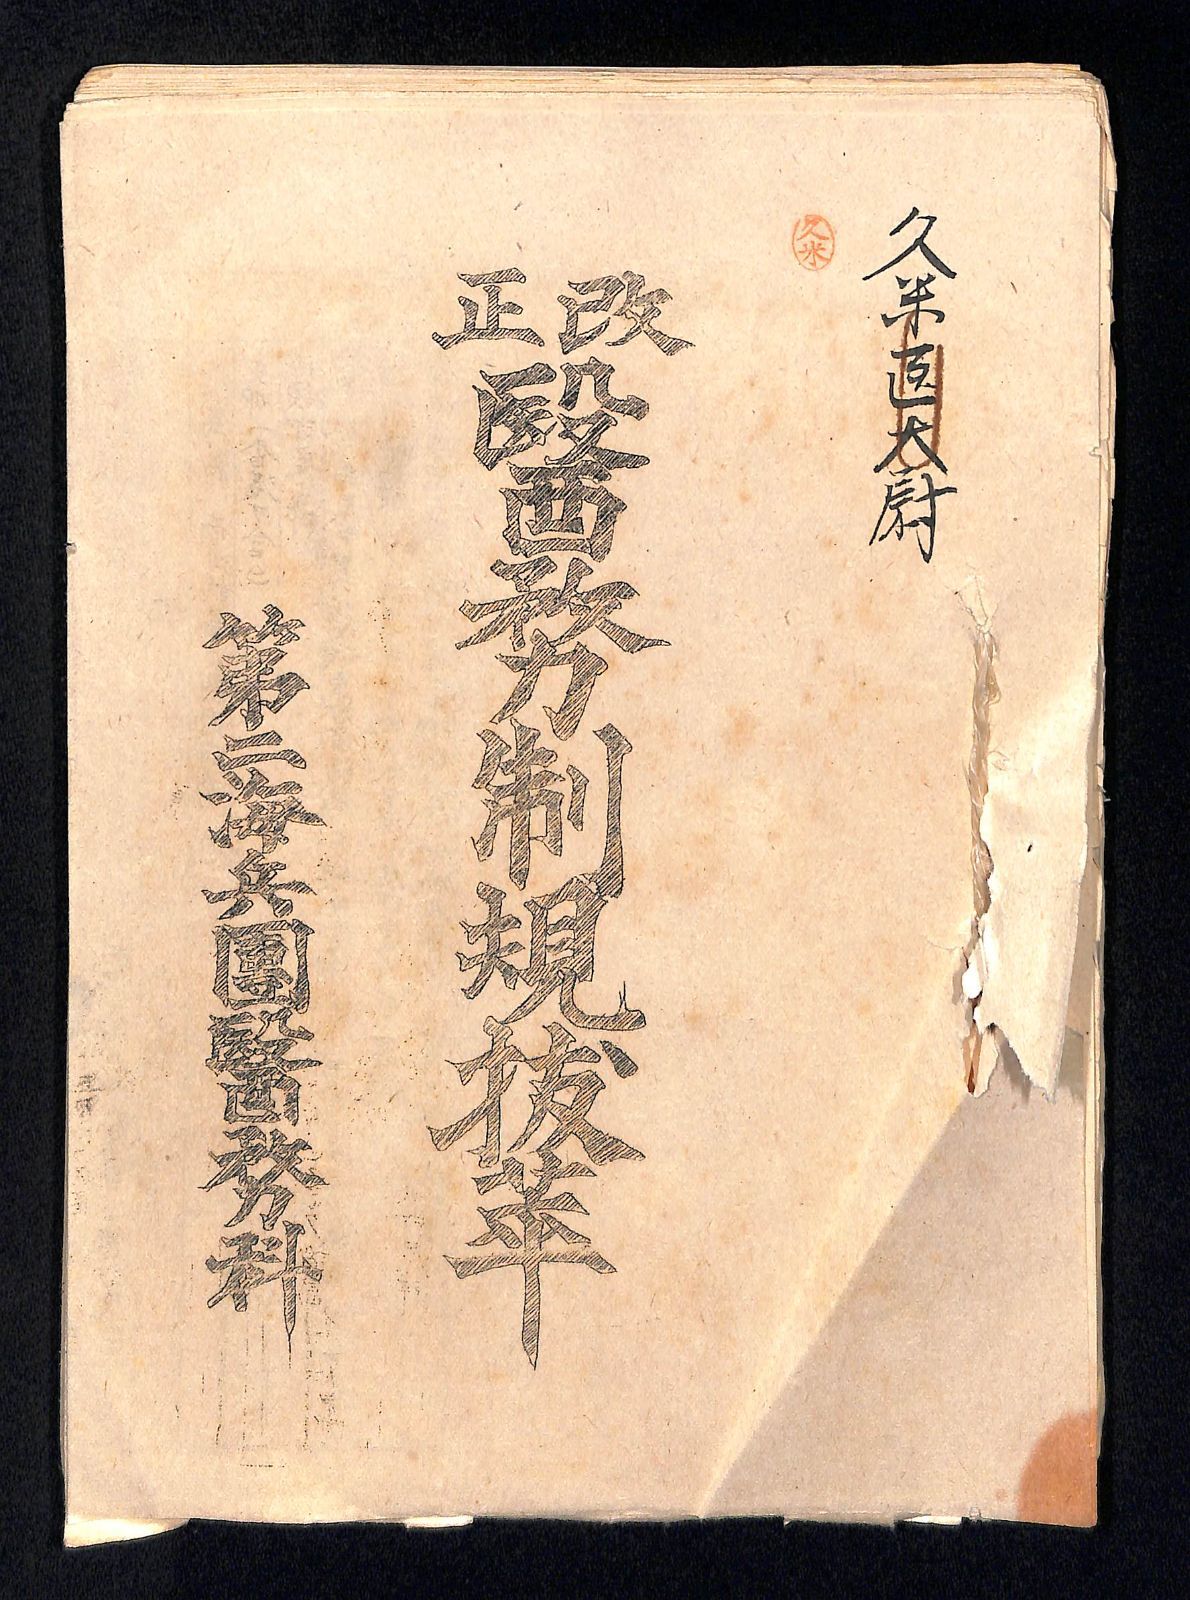 久米医大尉
久米
改正
醫務制規拔萃
第二海兵團醫務科